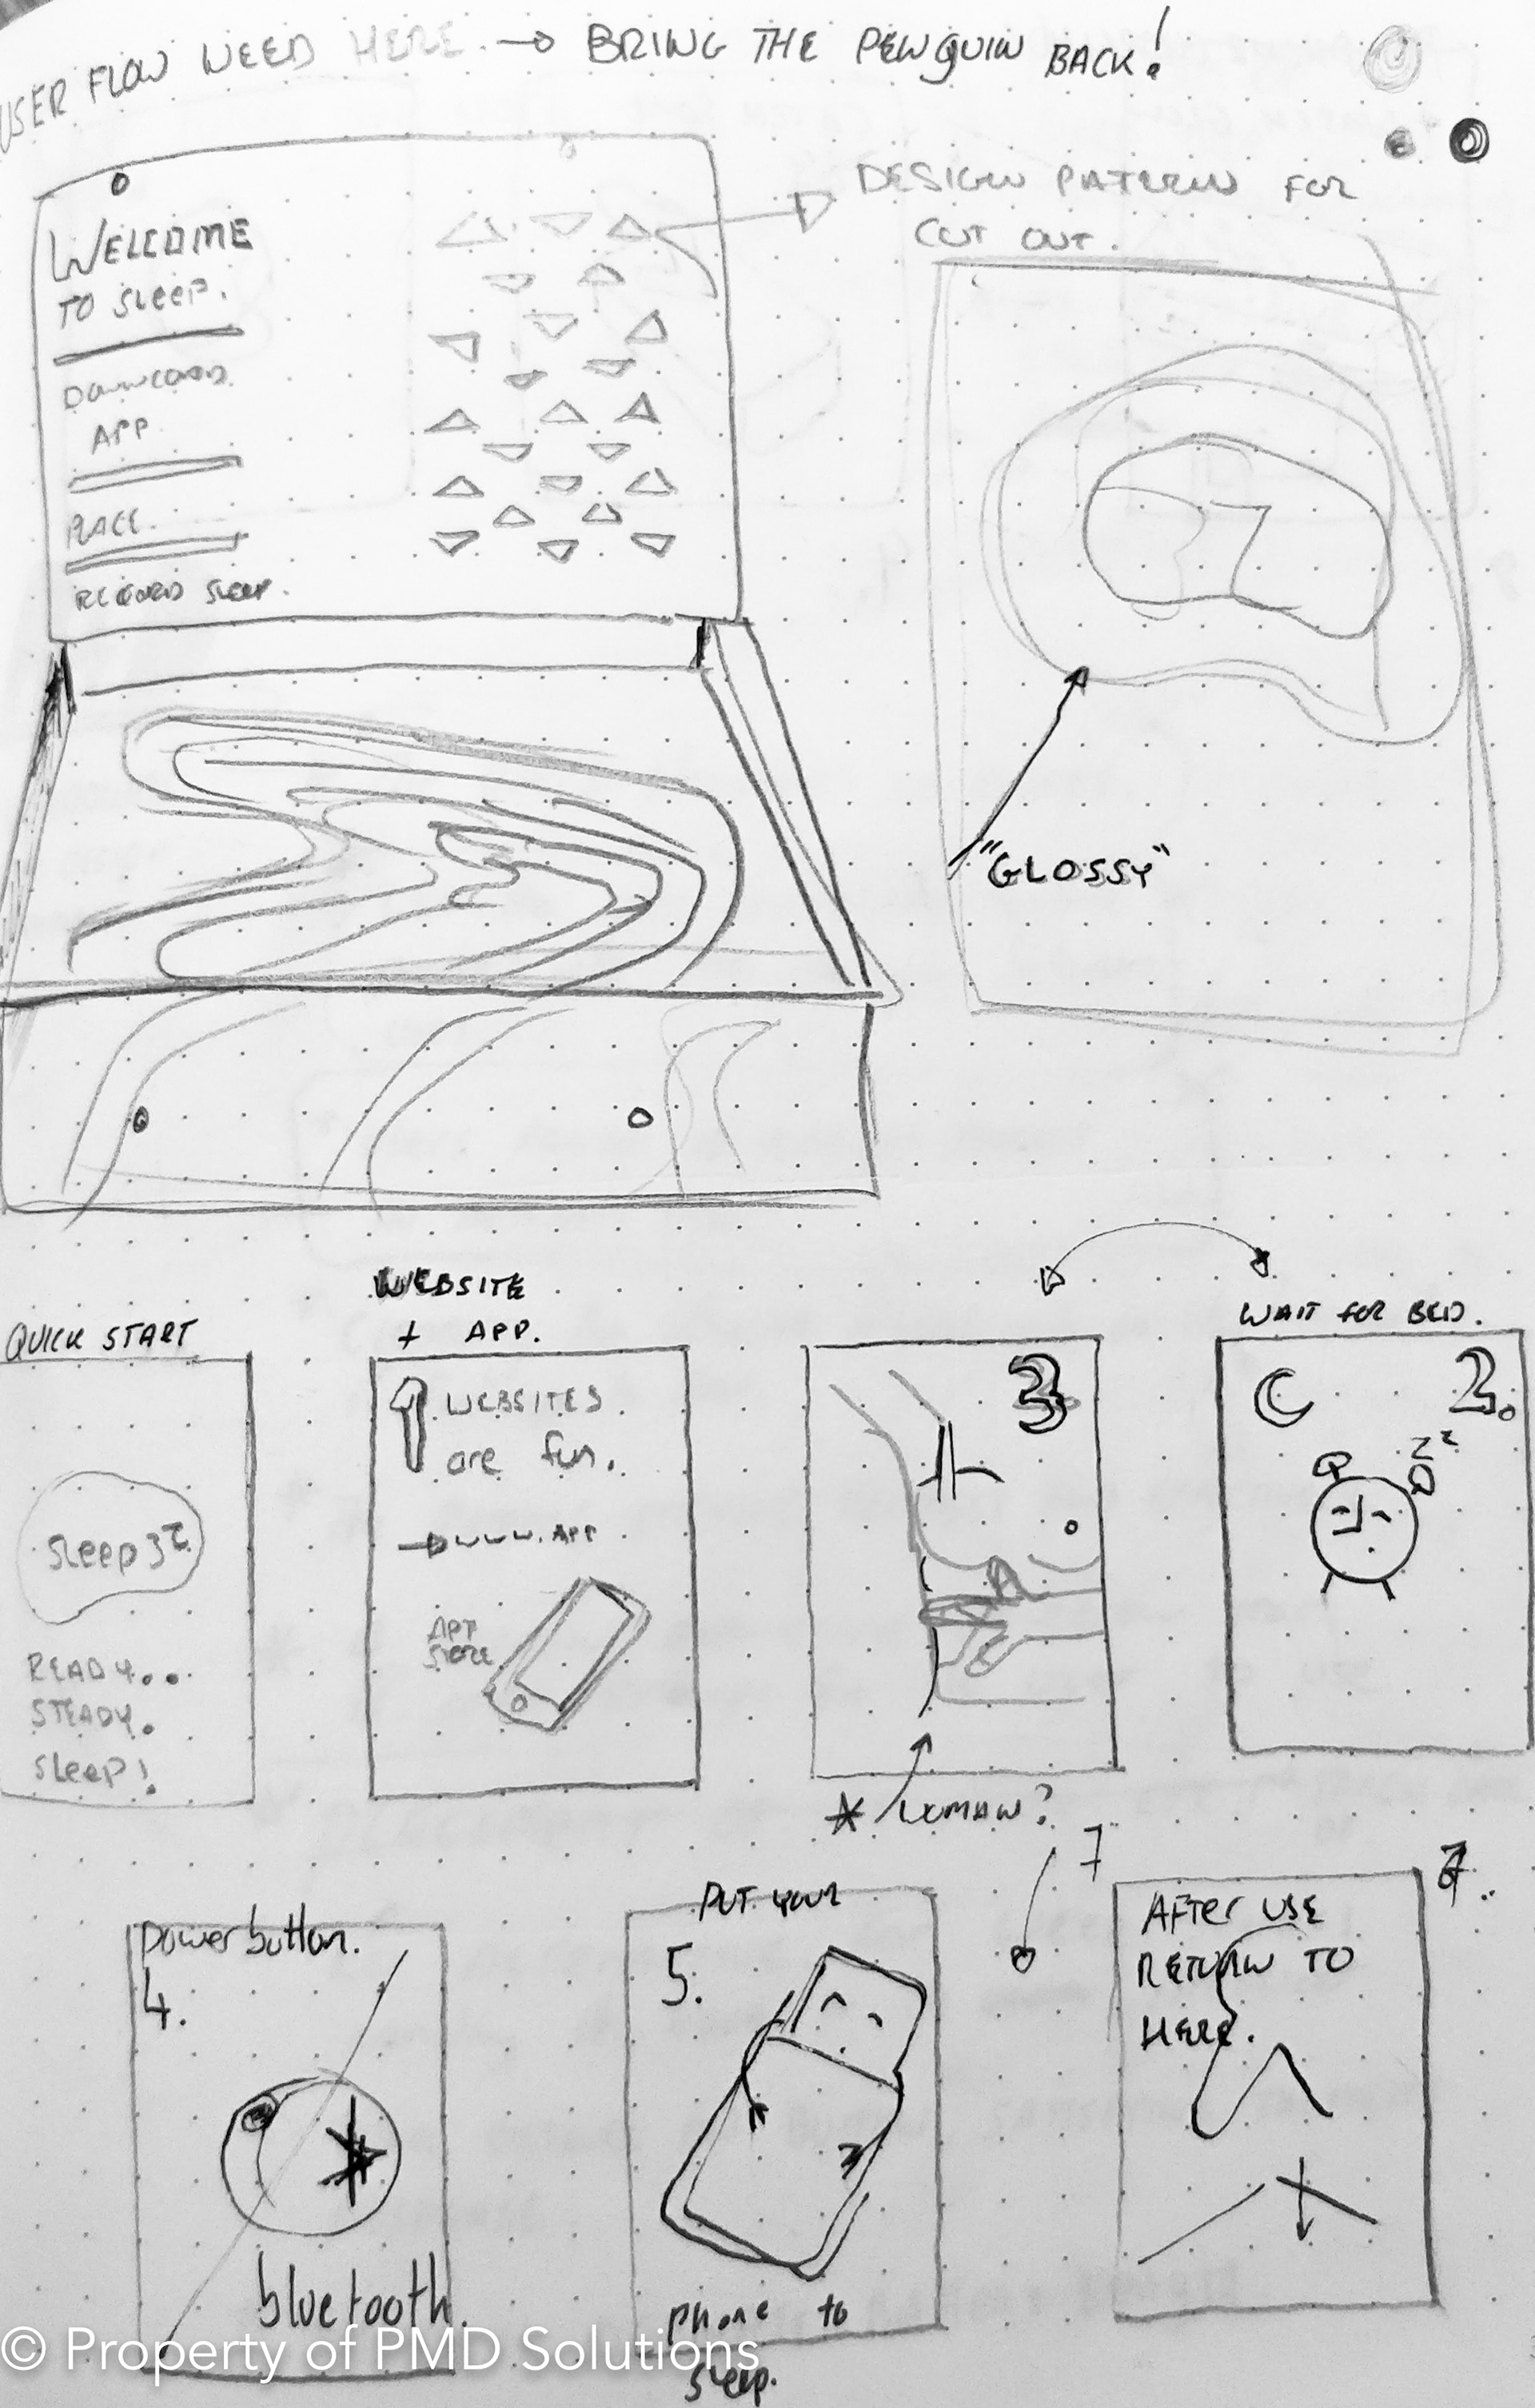 USER FLOW NEED HERE. → BRING THE PENGUIN BACK!
DESIGN PATTERN FOR
CUT OUT.
WELCOME
TO SLEEP.
DOWNLOAD
APP
PLACE.
RECORD SLEEP.
"GLOSSY"
QUICK START
WEBSITE
+ APP.
WAIT FOR BED.
WEBSITES
are fun.
→ www.APP
APP
STORE
3
2.
zz
Sleep
READY...
STEADY.
Sleep!
* WOMAN?
7
Power button.
4.
bluetooth.
PUT YOUR
5.
phone to
sleep.
AFTER USE
RETURN TO
HERE.
© Property of PMD Solutions